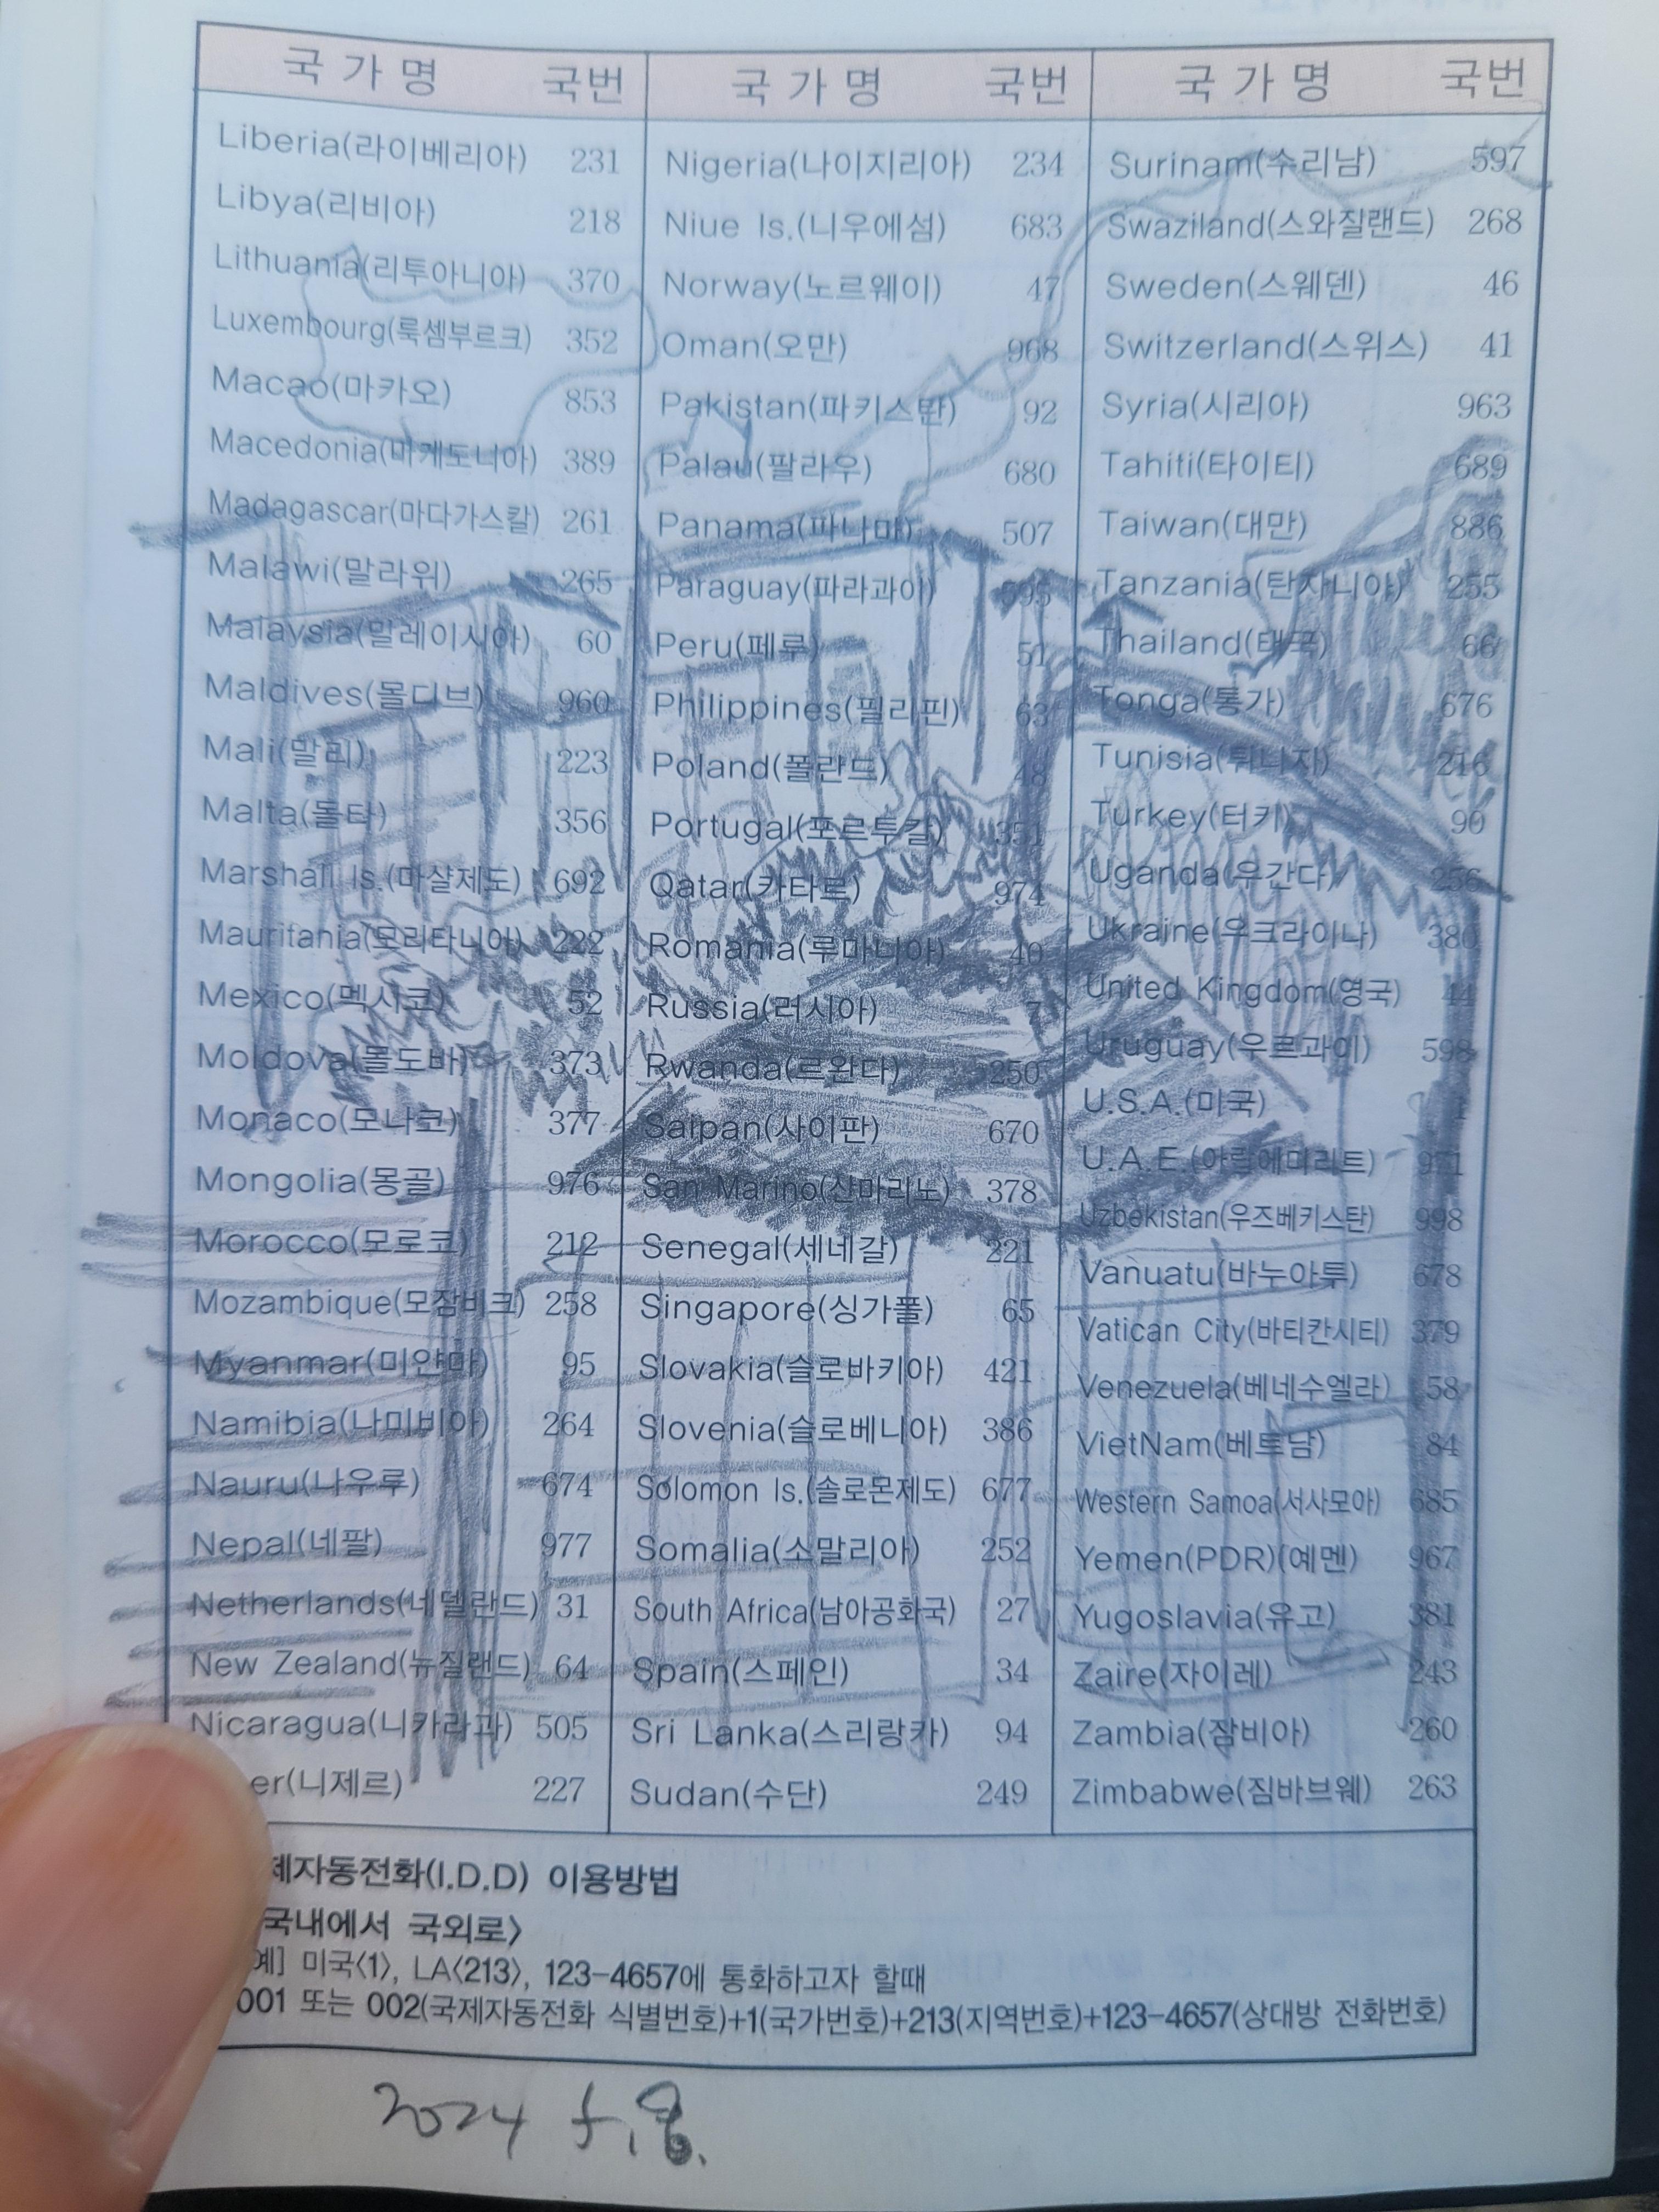 국 가 명 국번
Liberia(라이베리아) 231
Libya(리비아) 218
Lithuania(리투아니아) 370
Luxembourg(룩셈부르크) 352
Macao(마카오) 853
Macedonia(마케도니아) 389
Madagascar(마다가스칼) 261
Malawi(말라위) 265
Malaysia(말레이시아) 60
Maldives(몰디브) 960
Mali(말리) 223
Malta(몰타) 356
Marshall Is.(마샬제도) 692
Mauritania(모리타니아) 222
Mexico(멕시코) 52
Moldova(몰도바) 373
Monaco(모나코) 377
Mongolia(몽골) 976
Morocco(모로코) 212
Mozambique(모잠비크) 258
Myanmar(미얀마) 95
Namibia(나미비아) 264
Nauru(나우루) 674
Nepal(네팔) 977
Netherlands(네델란드) 31
New Zealand(뉴질랜드) 64
Nicaragua(니카라과) 505
er(니제르) 227
국 가 명 국번
Nigeria(나이지리아) 234
Niue Is.(니우에섬) 683
Norway(노르웨이) 47
Oman(오만) 968
Pakistan(파키스탄) 92
Palau(팔라우) 680
Panama(파나마) 507
Paraguay(파라과이) 595
Peru(페루) 51
Philippines(필리핀) 63
Poland(폴란드) 48
Portugal(포르투칼) 351
Qatar(카타르) 974
Romania(루마니아) 40
Russia(러시아) 7
Rwanda(르완다) 250
Saipan(사이판) 670
San Marino(산마리노) 378
Senegal(세네갈) 221
Singapore(싱가폴) 65
Slovakia(슬로바키아) 421
Slovenia(슬로베니아) 386
Solomon Is.(솔로몬제도) 677
Somalia(소말리아) 252
South Africa(남아공화국) 27
Spain(스페인) 34
Sri Lanka(스리랑카) 94
Sudan(수단) 249
국 가 명 국번
Surinam(수리남) 597
Swaziland(스와질랜드) 268
Sweden(스웨덴) 46
Switzerland(스위스) 41
Syria(시리아) 963
Tahiti(타이티) 689
Taiwan(대만) 886
Tanzania(탄자니아) 255
Thailand(태국) 66
Tonga(통가) 676
Tunisia(튀니지) 216
Turkey(터키) 90
Uganda(우간다) 256
Ukraine(우크라이나) 380
United Kingdom(영국) 44
Uruguay(우르과이) 598
U.S.A.(미국) 1
U.A.E.(아랍에미리트) 971
Uzbekistan(우즈베키스탄) 998
Vanuatu(바누아투) 678
Vatican City(바티칸시티) 379
Venezuela(베네수엘라) 58
VietNam(베트남) 84
Western Samoa(서사모아) 685
Yemen(PDR)(예멘) 967
Yugoslavia(유고) 381
Zaire(자이레) 243
Zambia(잠비아) 260
Zimbabwe(짐바브웨) 263
제자동전화(I.D.D) 이용방법
국내에서 국외로〉
예] 미국〈1〉, LA〈213〉, 123-4657에 통화하고자 할때
001 또는 002(국제자동전화 식별번호)+1(국가번호)+213(지역번호)+123-4657(상대방 전화번호)
2024